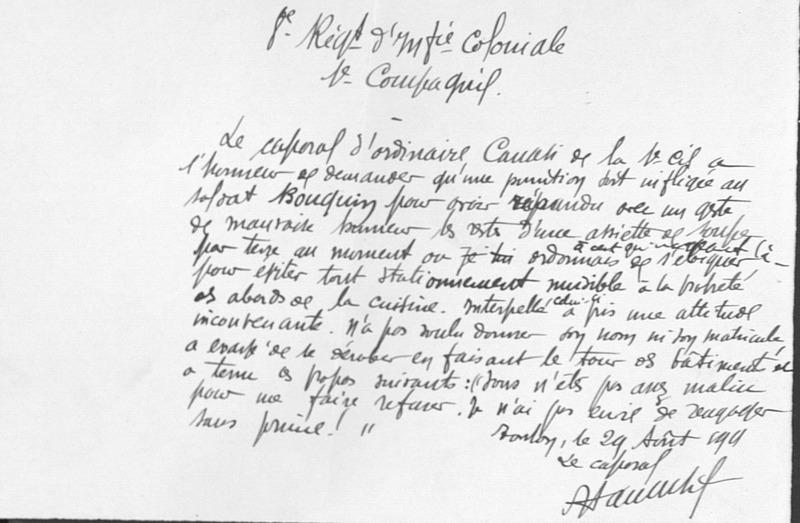 8e Régt d'Infie Coloniale
1e Compagnie.
Le caporal d'ordinaire Canati de la 1e Cie a
l'honneur de demander qu'une punition soit infligée au
soldat Bouquin pour avoir répandu avec un geste
de mauvaise humeur les restes d'une assiette de soupe
par terre au moment où je lui ordonnais de s'éloigner
à ceux qui mangeaient là-
pour éviter tout stationnement nuisible à la propreté
des abords de la cuisine. Interpellé celui-ci a pris une attitude
inconvenante. N'a pas voulu donner son nom ni son matricule,
a essayé de se dérober en faisant le tour des bâtiments et
a tenu les propos suivants : "Vous n'êtes pas assez malin
pour me faire refuser. Je n'ai pas envie de rengager
sans prime ! "
Toulon, le 29 Août 1911
Le caporal